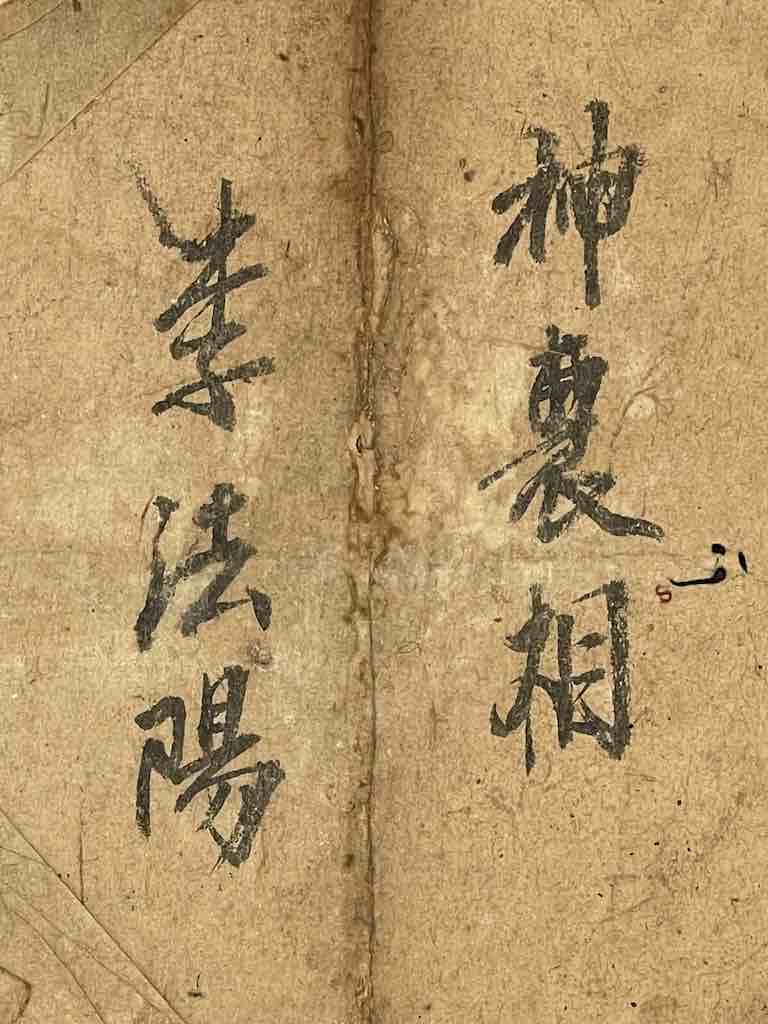 神裏相
李法陽